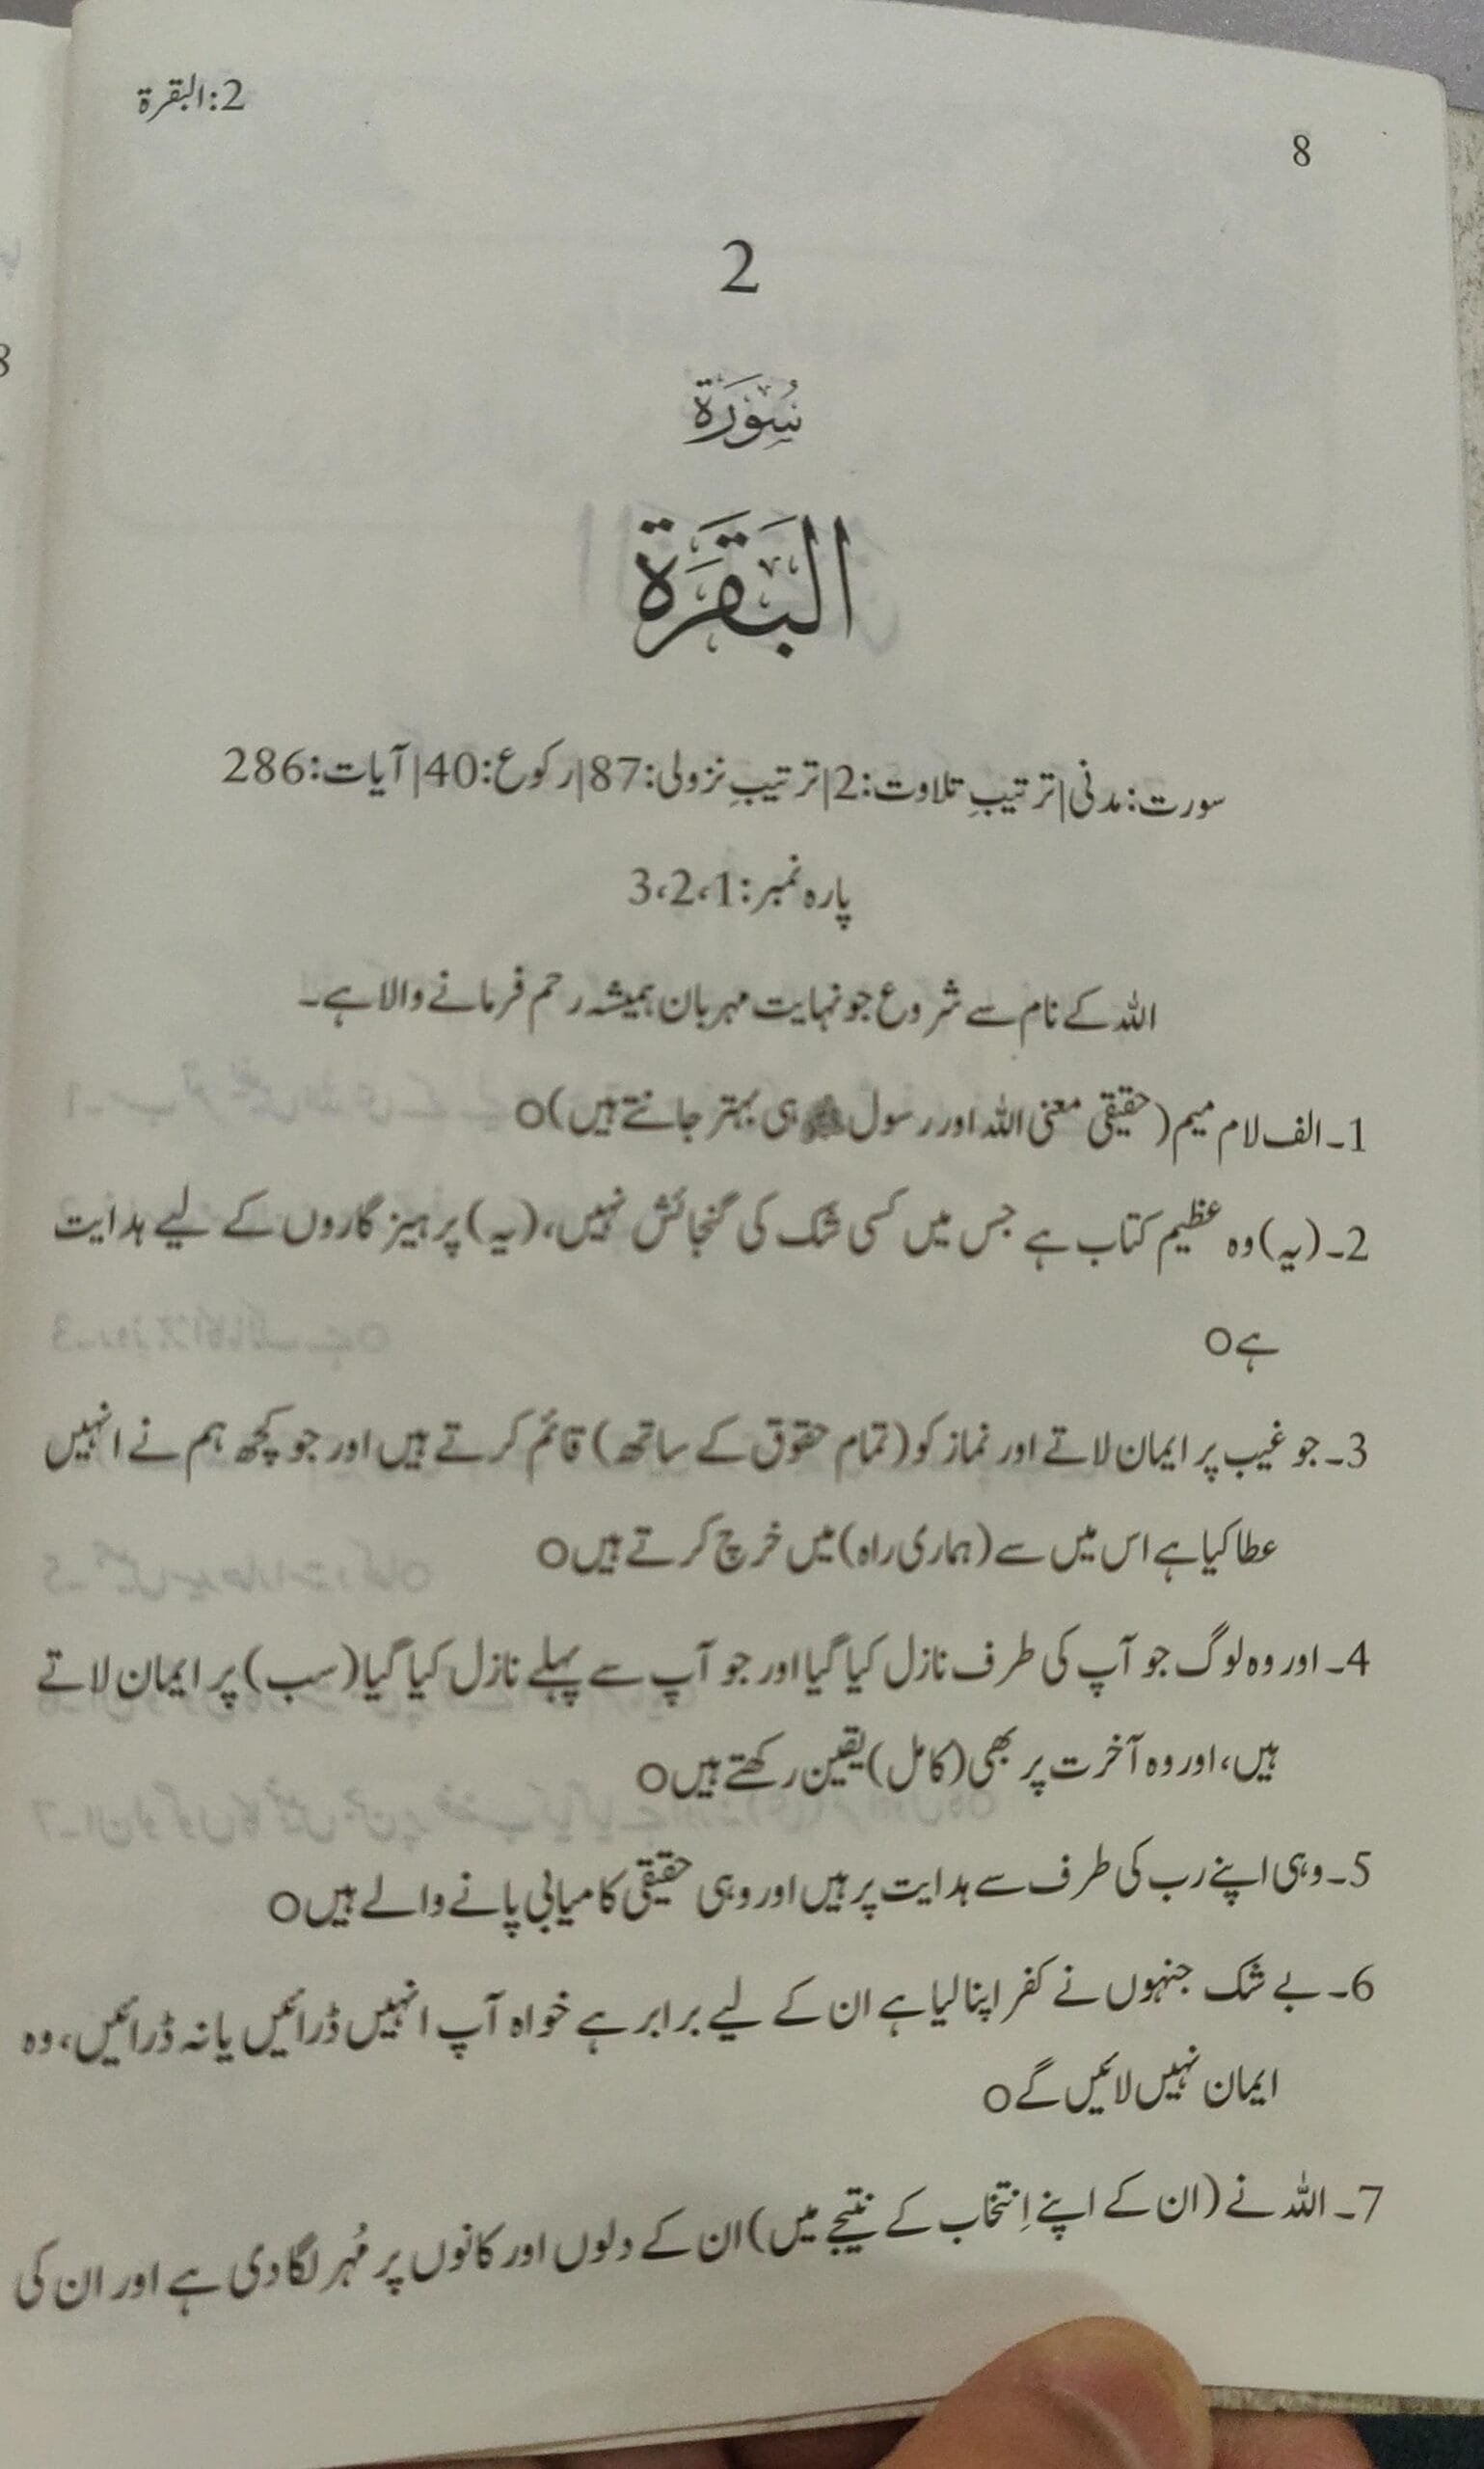 2:البقرة
8
2
سُوْرَة
الْبَقَرَة
سورت: مدنی|ترتیبِ تلاوت:2|ترتیبِ نزولی:87|رکوع:40|آیات:286
پارہ نمبر:1،2،3
اللہ کے نام سے شروع جو نہایت مہربان ہمیشہ رحم فرمانے والا ہے۔
1۔الف لام میم(حقیقی معنی اللہ اور رسول ﷺ ہی بہتر جانتے ہیں)O
2۔(یہ)وہ عظیم کتاب ہے جس میں کسی شک کی گنجائش نہیں،(یہ)پرہیزگاروں کے لیے ہدایت
ہےO
3۔جو غیب پر ایمان لاتے اور نماز کو(تمام حقوق کے ساتھ)قائم کرتے ہیں اور جو کچھ ہم نے انہیں
عطا کیا ہے اس میں سے(ہماری راہ)میں خرچ کرتے ہیںO
4۔اور وہ لوگ جو آپ کی طرف نازل کیا گیا اور جو آپ سے پہلے نازل کیا گیا(سب)پر ایمان لاتے
ہیں،اور وہ آخرت پر بھی(کامل)یقین رکھتے ہیںO
5۔وہی اپنے رب کی طرف سے ہدایت پر ہیں اور وہی حقیقی کامیابی پانے والے ہیںO
6۔بے شک جنہوں نے کفر اپنا لیا ہے ان کے لیے برابر ہے خواہ آپ انہیں ڈرائیں یا نہ ڈرائیں،وہ
ایمان نہیں لائیں گےO
7۔اللہ نے(ان کے اپنے اِنتخاب کے نتیجے میں)ان کے دلوں اور کانوں پر مُہر لگا دی ہے اور ان کی